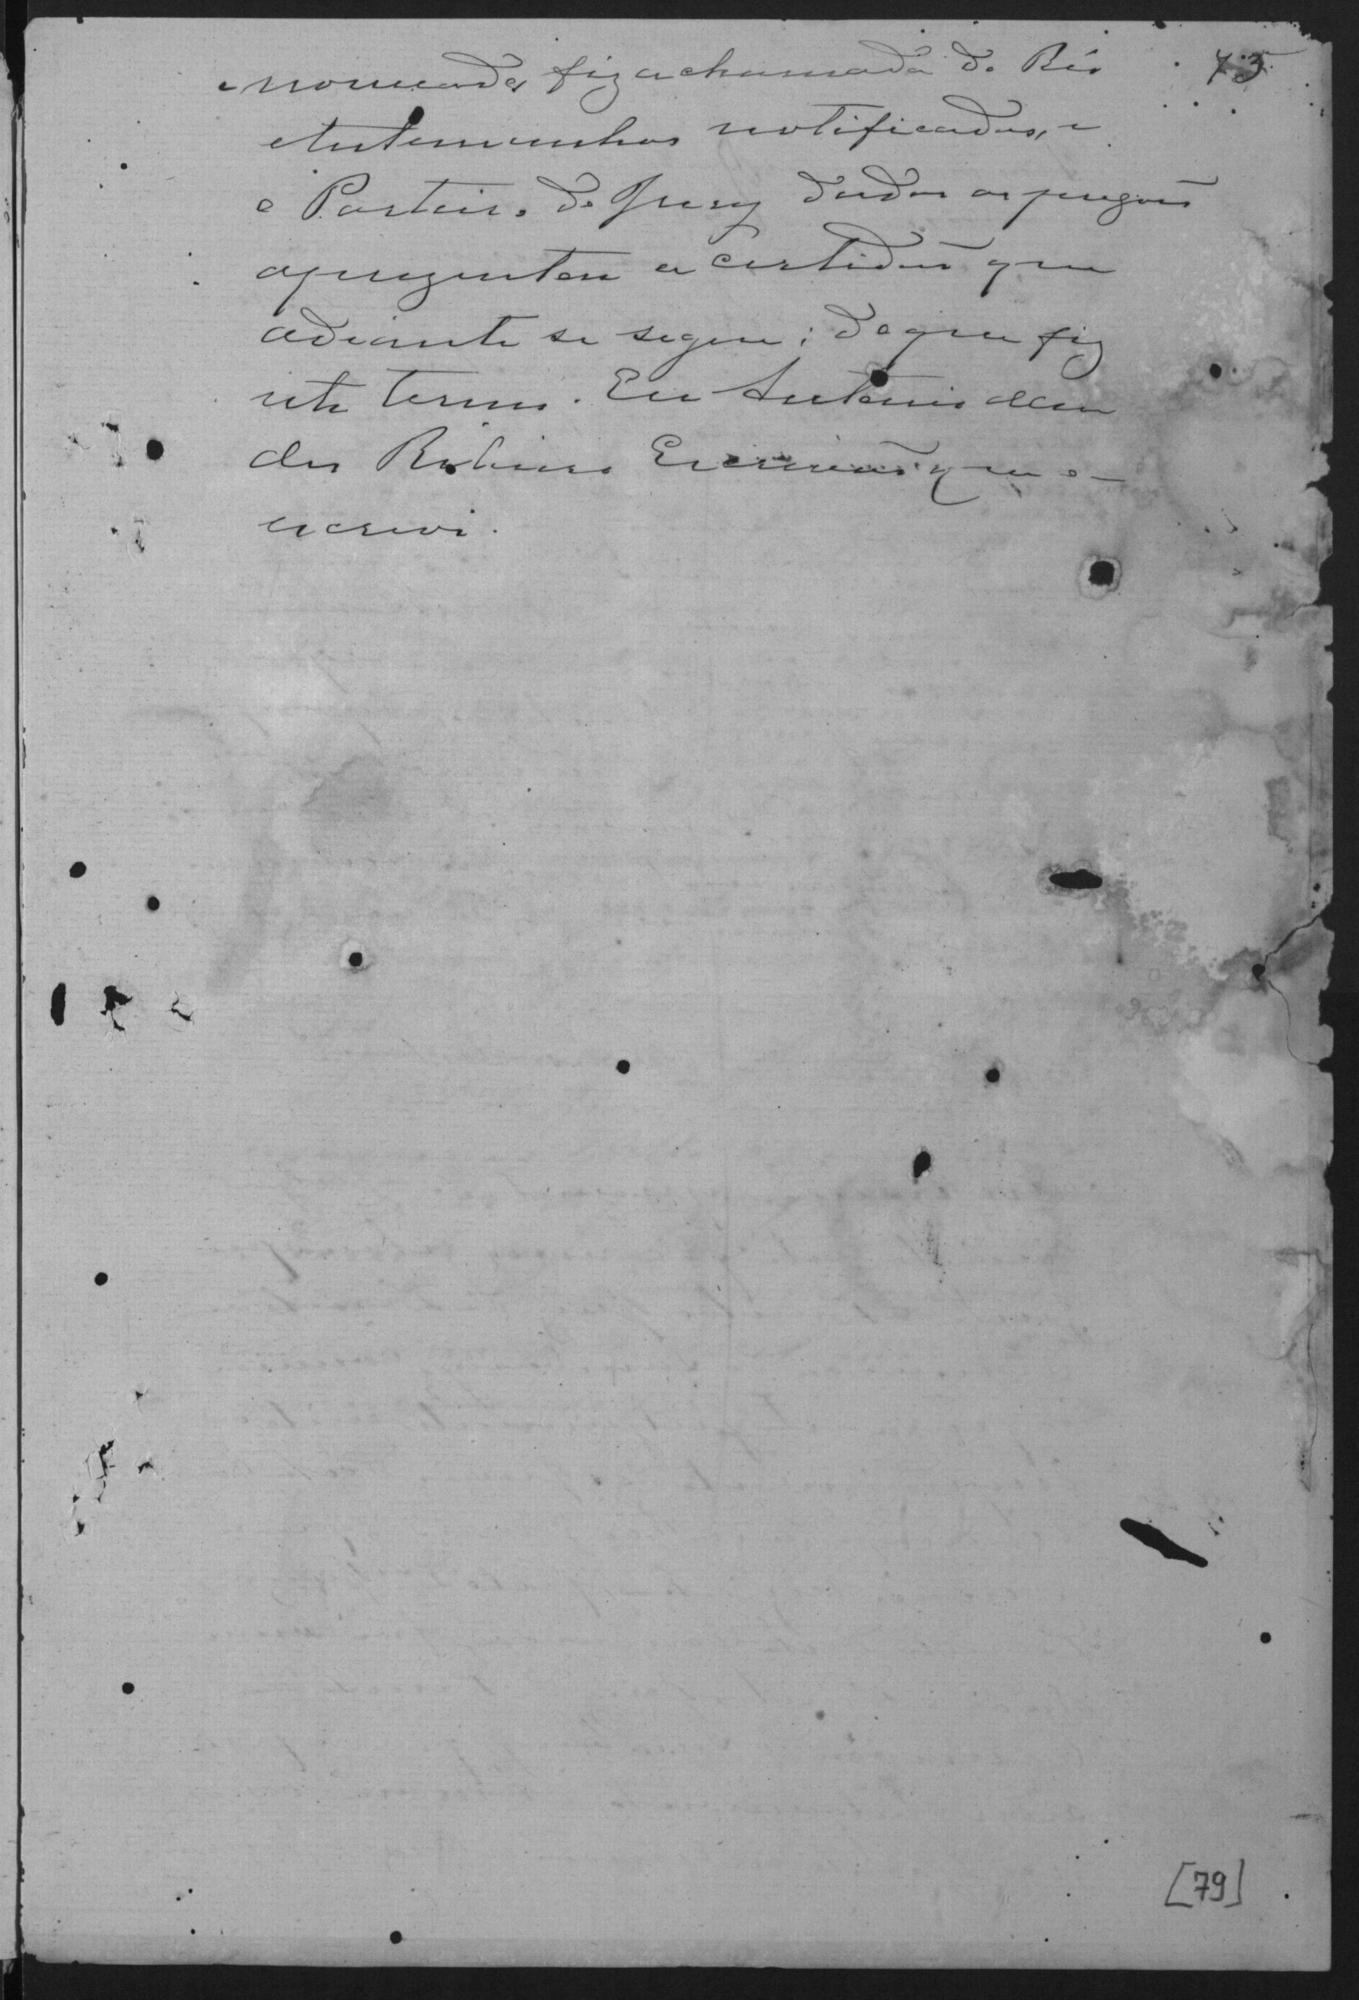 73
nomeado, fiz a chamada do Réo
e testemunhas notificadas, e
o Porteiro do Jury dando os pregões
aprezentou a certidão que
adiante se segue; do que fiz
este termo. Eu Antonio
Ribeiro Escrivão que o
escrevi.
[79]